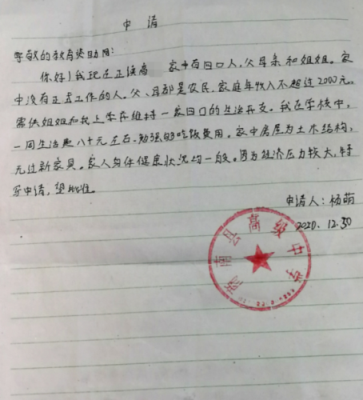 申请
尊敬的教育资助局：
你好！我现在正读高 家中有四口人，父母亲和姐姐。家
中没有正式工作的人。父、母都是农民，家庭年收入不超过2000元。
需供姐姐和我上学及维持一家四口的生活开支。我在学校中，
一周生活费八十元左右，勉强够吃饭费用。家中房屋为土木结构，
无过新家具。家人身体健康状况均一般。经济压力较大，特
申请，望批准。
申请人：杨萌
2020.12.30
县高级中学